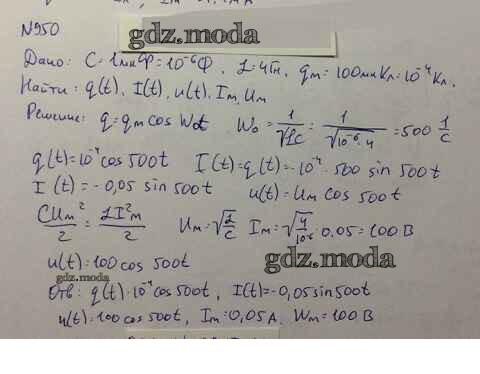 N950
gdz.moda
Дано: C=1мкФ=10⁻⁶Ф, L=4Гн, qₘ=100мкКл=10⁻⁴Кл.
Найти: q(t), I(t), u(t), Iₘ, Uₘ
Решение: q=qₘ cos W₀t W₀ = 1/√LC = 1/√10⁻⁶·4 = 500 1/с
q(t)=10⁻⁴ cos 500t I(t)=q(t)=-10⁻⁴·500 sin 500t
I(t)=-0,05 sin 500t u(t)=Uₘ cos 500t
CUₘ²/2 = LI²ₘ/2 Uₘ=√L/C Iₘ=√4/10⁻⁶·0.05=100 В
u(t)=100 cos 500t
gdz.moda
gdz.moda
Отв: q(t)=10⁻⁴ cos 500t, I(t)=-0,05 sin 500t
u(t)=100 cos 500t, Iₘ=0,05 A, Wₘ=100 В